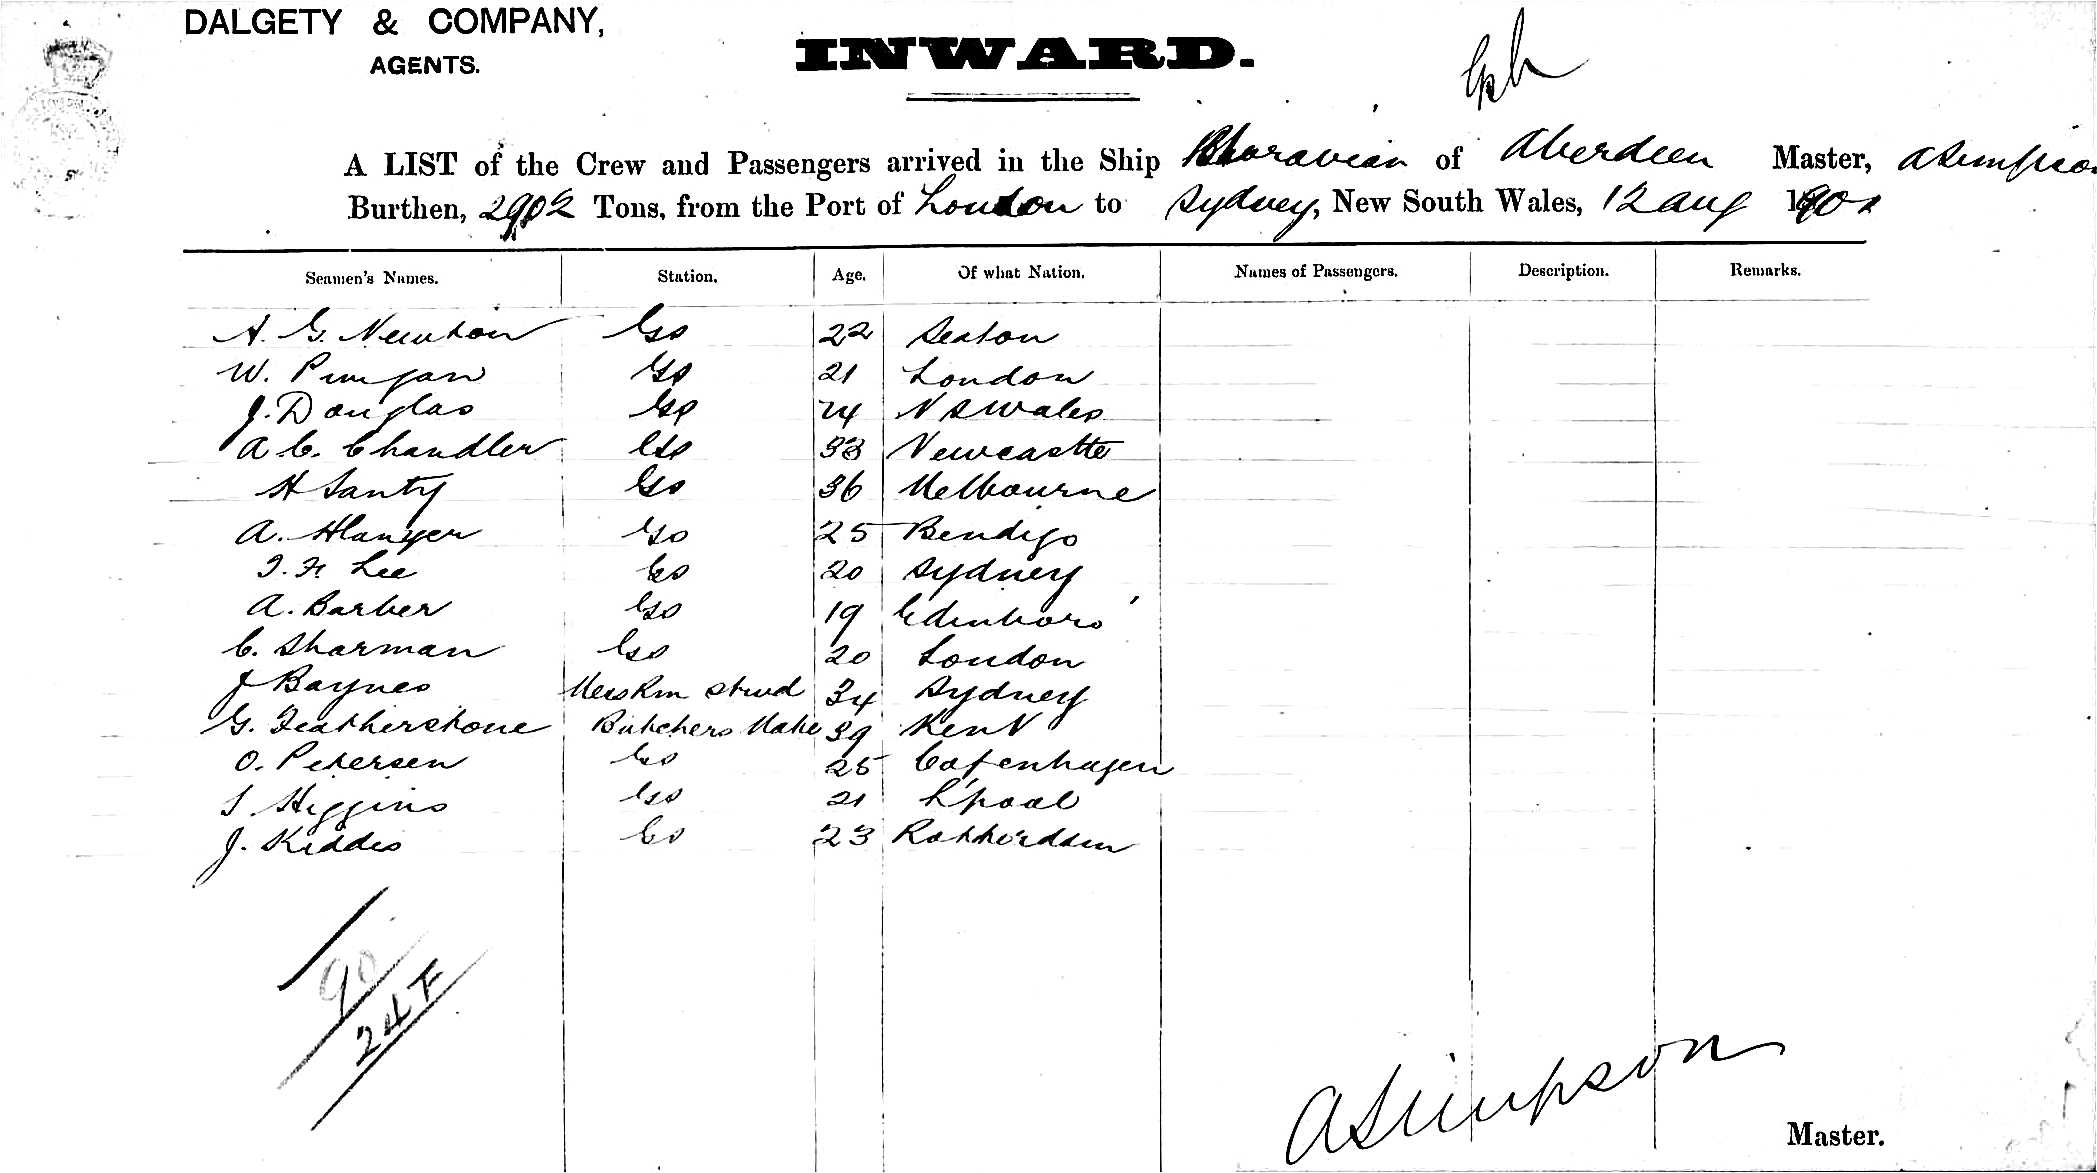 DALGETY & COMPANY,
AGENTS.
INWARD.
A LIST of the Crew and Passengers arrived in the Ship Moravian of Aberdeen Master, A Simpson
Burthen, 2902 Tons, from the Port of London to Sydney, New South Wales, 12 Aug 1901
Seamen's Names. Station. Age. Of what Nation. Names of Passengers. Description. Remarks.
A. G. Newton Do 22 Seaton
W. 21 London
J. Douglas Do 24 N S Wales
A C. Chandler Do 33 Newcastle
H Santy Do 36 Melbourne
A. Do 25 Bendigo
Lee Do 20 Sydney
A. Barber Do 19 Edinboro'
C. Sharman Do 20 London
J Baynes Mess Rm Stwd 34 Sydney
G. Featherstone Butchers Mate 39 Kent
O. Petersen Do 25 Copenhagen
Higgins Do 21 L'pool
J. Kiddis Do 23 Rotterdam
90
24 F
A Simpson
Master.